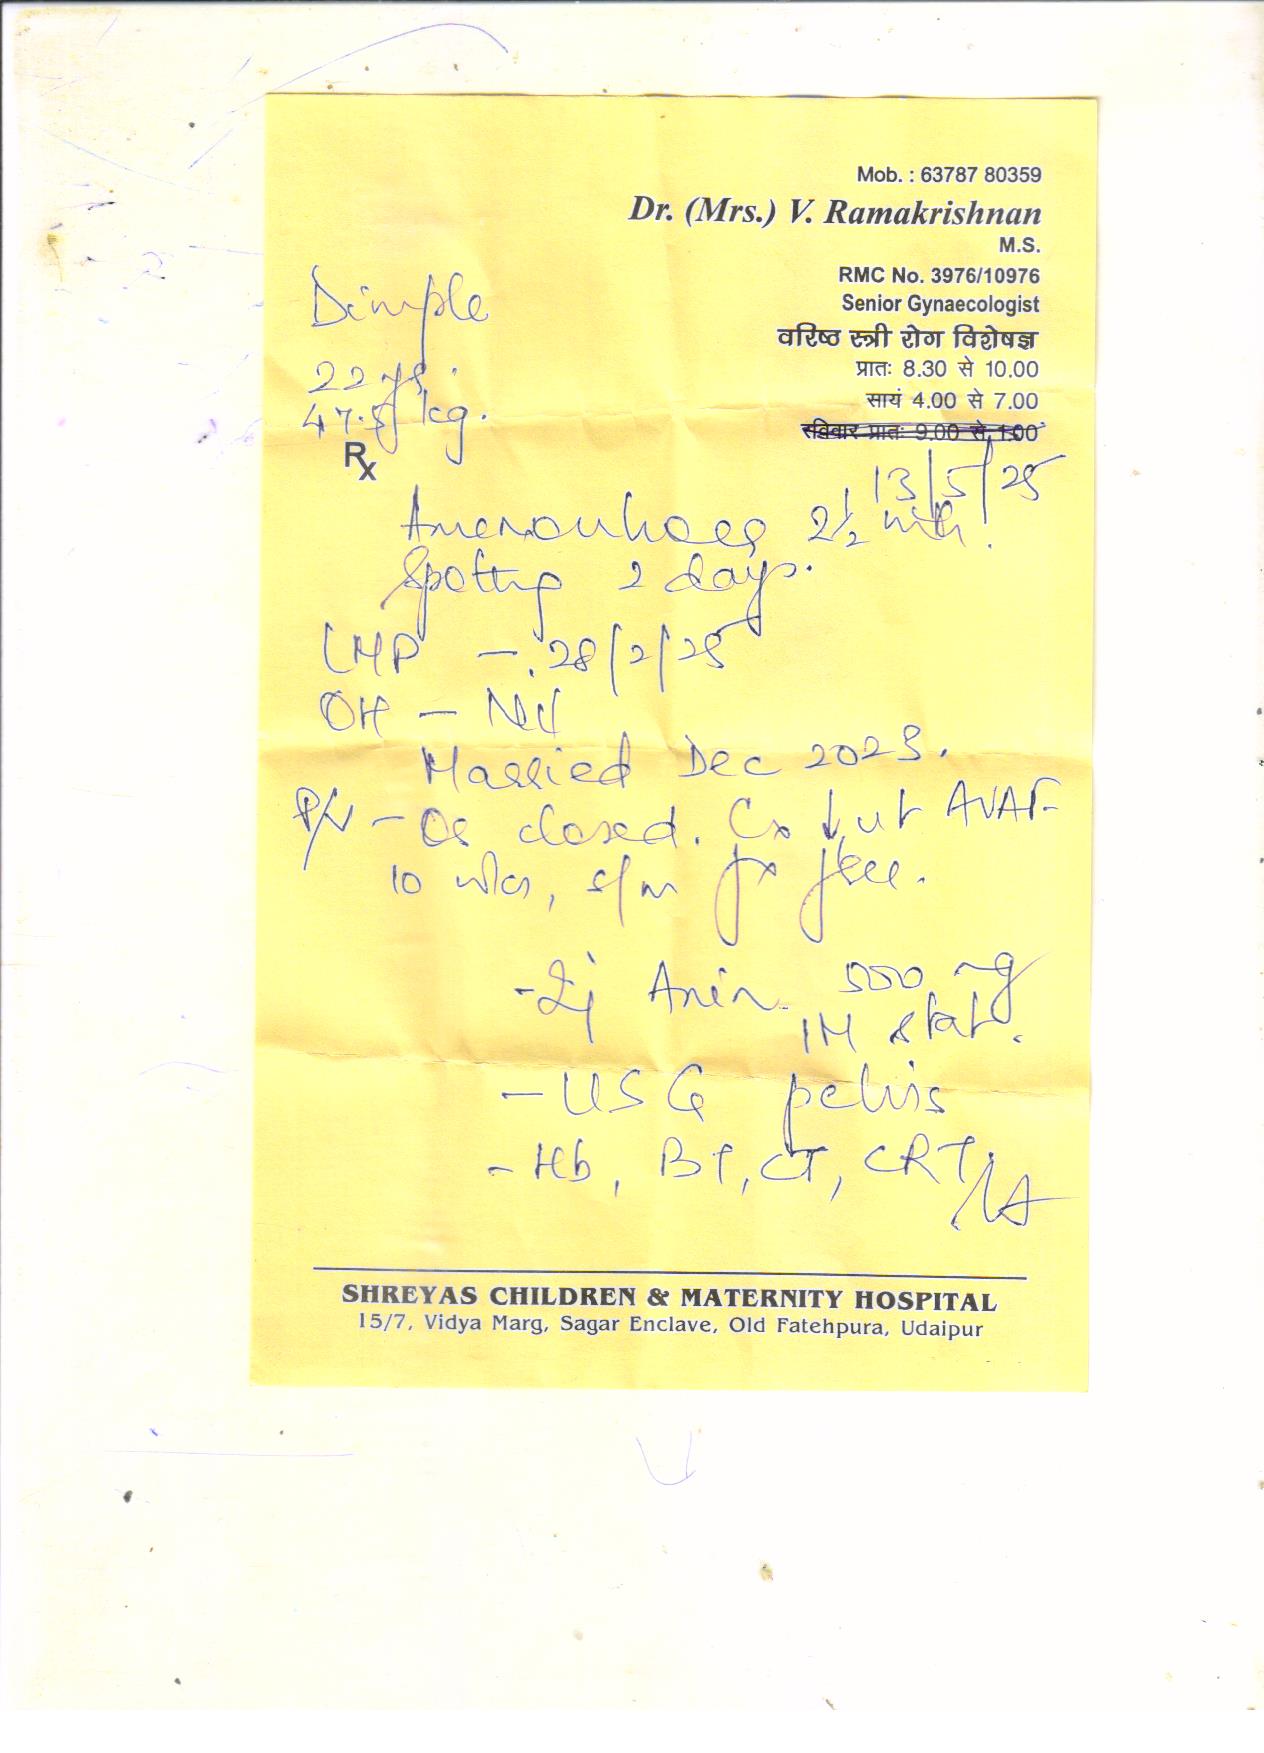 Mob. : 63787 80359
Dr. (Mrs.) V. Ramakrishnan
M.S.
RMC No. 3976/10976
Senior Gynaecologist
वरिष्ठ स्त्री रोग विशेषज्ञ
प्रातः 8.30 से 10.00
सायं 4.00 से 7.00
रविवार प्रातः 9.00 से 1.00
Dimple
22 yrs.
47.5 kg.
Rx
13/5/25
Amenorrhoea 2½ mth.
Spotting 2 days.
LMP - 28/2/25
OH - Nil
Married Dec 2023.
P/V - Os closed. Cx ↓, ut AVAF
10 wks, s/m fx free.
- Inj 500 mg
IM stat.
- USG pelvis
- Hb, BT, CT, CRT
SHREYAS CHILDREN & MATERNITY HOSPITAL
15/7, Vidya Marg, Sagar Enclave, Old Fatehpura, Udaipur